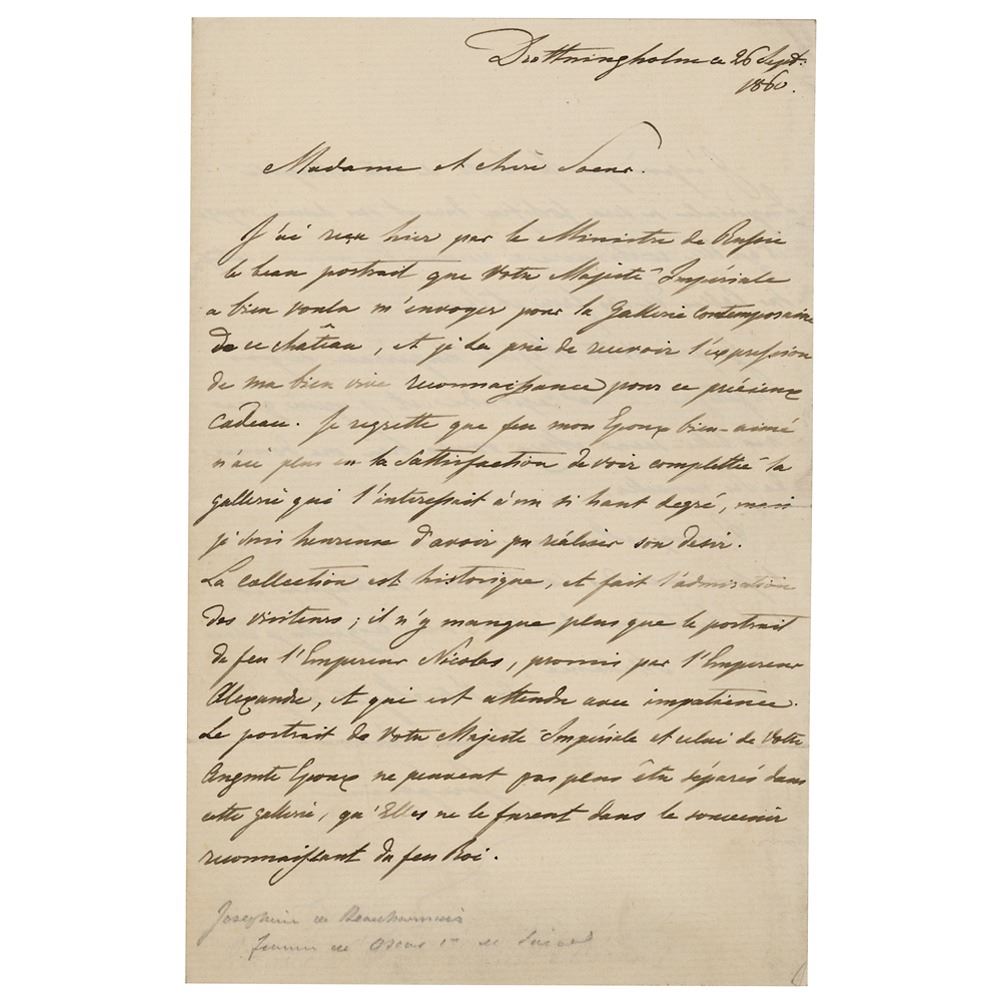 Drottningholm ce 26 Sept:
1860.
Madame et chère Soeur.
J'ai reçu hier par le Ministre de Russie
le beau portrait que Votre Majesté Impériale
a bien voulu m'envoyer pour la Gallerie contemporaine
de ce château, et je La prie de recevoir l'expression
de ma bien vive reconnaissance pour ce précieux
cadeau. Je regrette que feu mon Epoux bien-aimé
n'aie plus eu la Sattisfaction de voir complettée la
gallerie qui l'interessait à un si haut degré, mais
je suis heureuse d'avoir pu réaliser son desir.
La collection est historique, et fait l'admiration
des visiteurs; il n'y manque plus que le portrait
de feu l'Empereur Nicolas, promis par l'Empereur
Alexandre, et qui est attendu avec impatience.
Le portrait de Votre Majesté Impériale et celui de Votre
Auguste Epoux ne peuvent pas plus être séparés dans
cette gallerie, qu'Elles ne le furent dans le souvenir
reconnaissant du feu Roi.
Josephine de Beauharnais
femme de Oscar 1er de Suède